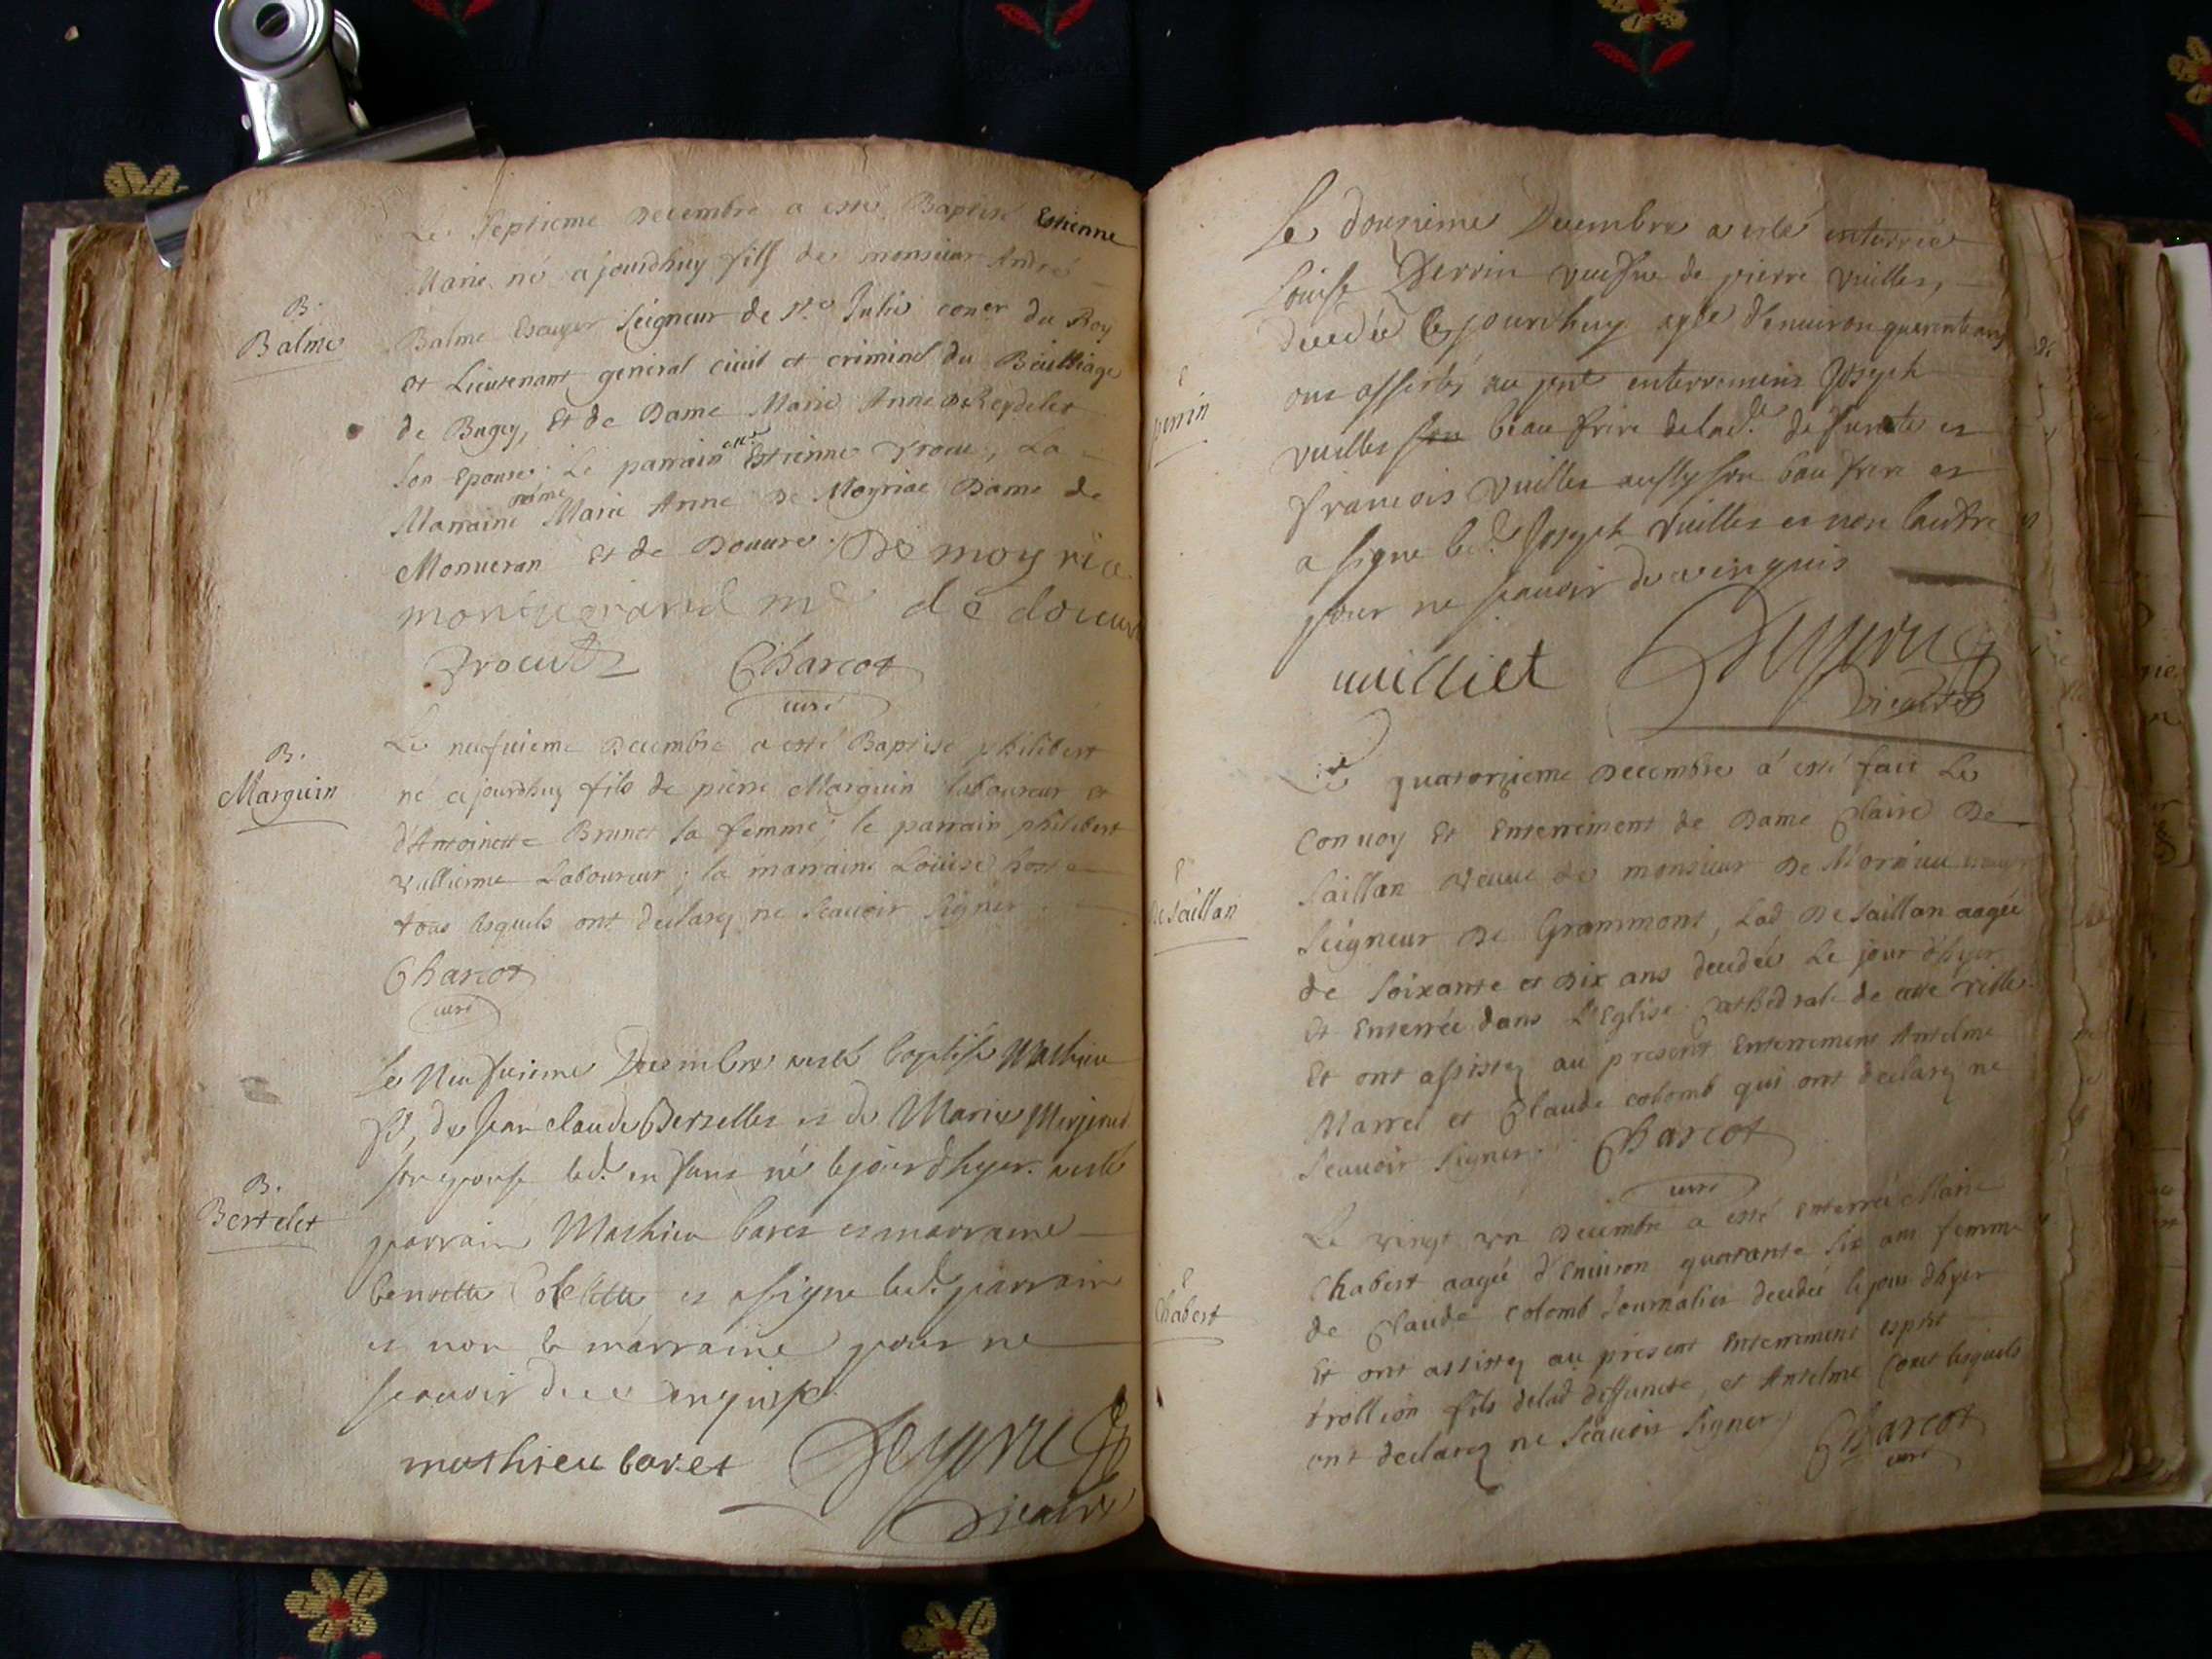 Le Septieme Decembre a esté Baptisé Estienne
Marie né ajourdhuy fils de monsieur André
B.
Balme
Balme Escuyer Seigneur de Ste Julie coner du Roy
et Lieutenant general civil et criminel du Bailliage
de Bugey, Et de Dame Marie Anne De Reydelet
Son Epouse. Le parrain Estienne Trocu, La
Marraine Marie Anne De Moyriac Dame de
Et de Douure. De moyria
de douure
Charcot
curé
B.
Marguin
Le neufuieme Decembre a esté Baptisé philibert
né ajourdhuy fils de pierre Marguin laboureur et
d'Antoinette Brunet sa femme; le parrain philibert
vullierme Laboureur; la marraine Loüise
tous lesquels ont declarez ne Scauoir Signer
Charcot
curé
Le Neufuieme Decembre a esté baptisé Mathieu
de Jean claude Bertellet et de Marie
son epouse led. enfans né le jour d'hyer. a esté
B.
Bertelet
parrain Mathieu baret et marraine
et a signe led. parrain
et non la marraine pour ne
scauoir de ce enquise
mathieu baret
vicaire
Le douzieme Decembre a esté enterrée
Louise Perrin veufue de pierre vuillet,
decedée ce jourdhuy agée d'enuiron quarente ans
perrin
ont assistés au pnt enterrement Joseph
vuillet son beau frere de lad.te defunte et
francois vuillet aussy son beau frere et
a signe led. Joseph vuillet et non lautre
pour ne scauoir de ce enquis
vuilliet
vicaire
Le quatorzieme Decembre à esté fait Le
Conuoy Et Enterrement de Dame Claire De
Saillan veuue de monsieur De Mornieu
De Saillan
Seigneur De Grammont, Lad De Saillan aagée
de Soixante et Dix ans decedée Le jour d'hyer
Et Enterrée dans L'Eglise Cathédrale de cette ville
Et ont assistez au present Enterrement Antelme
Marrel et Claude colomb qui ont declarez ne
Scauoir Signer. Charcot
curé
Le vingt un Decembre a esté enterrée Marie
Chabert
Chabert aagée d'Enuiron quarante Six ans femme
de Claude Colomb Journalier decedée le jour dhyer
Et ont assistez au present Enterrement esprit
trollion fils delad deffuncte, et Antelme lesquels
ont declarez ne Scauoir Signer
Charcot
curé